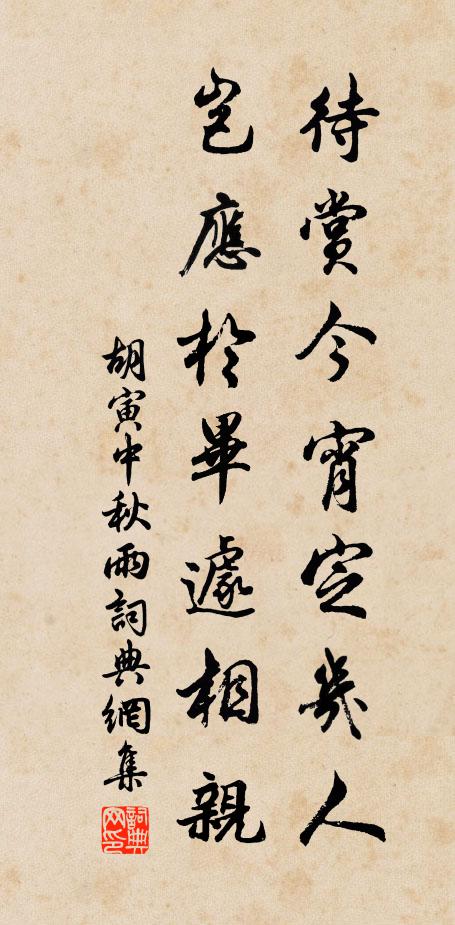 待賞今宵定幾人
豈應於畢遽相親
胡寅中秋雨詞典網集
詞典网印